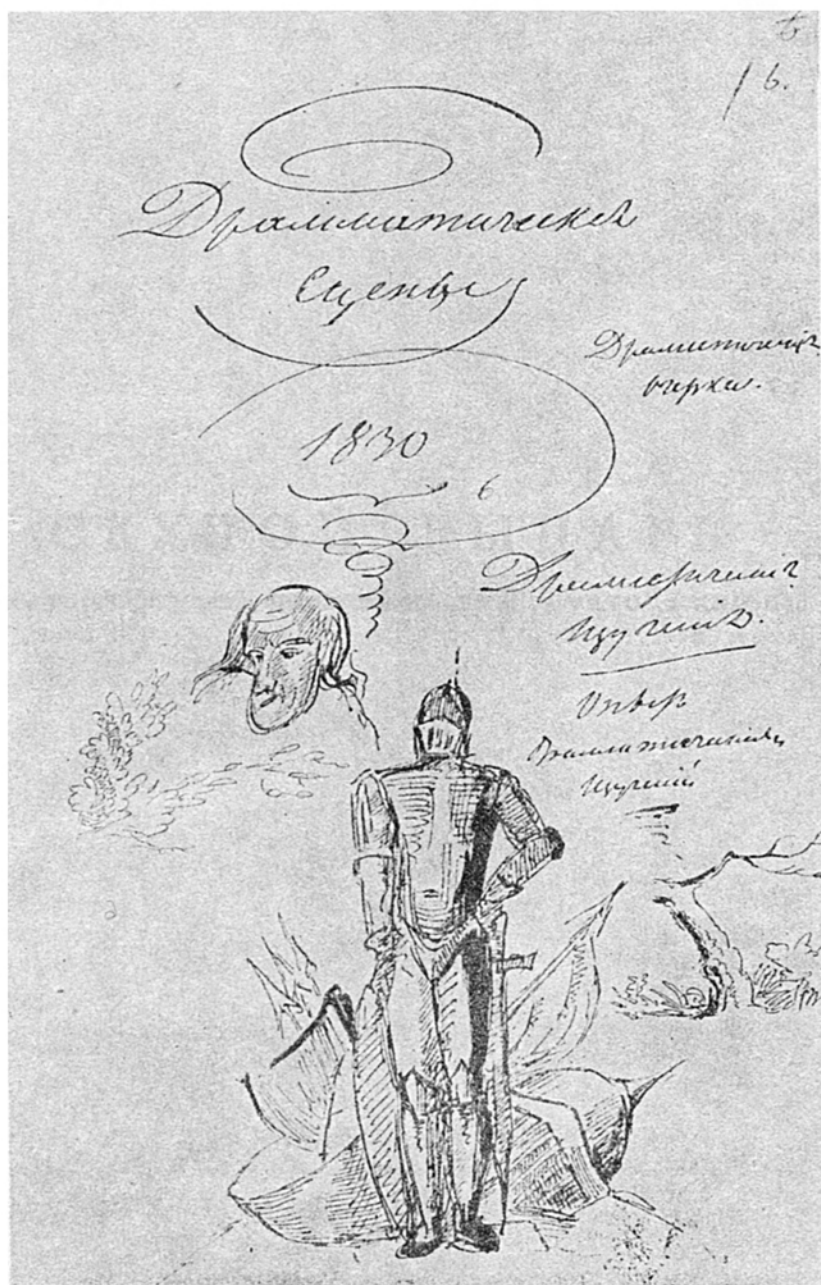 6.
Драмматическія
сцены
1830
6
Драматическіе
очерки.
Драматическія
изученія.
Опытъ
драмматическихъ
изученій